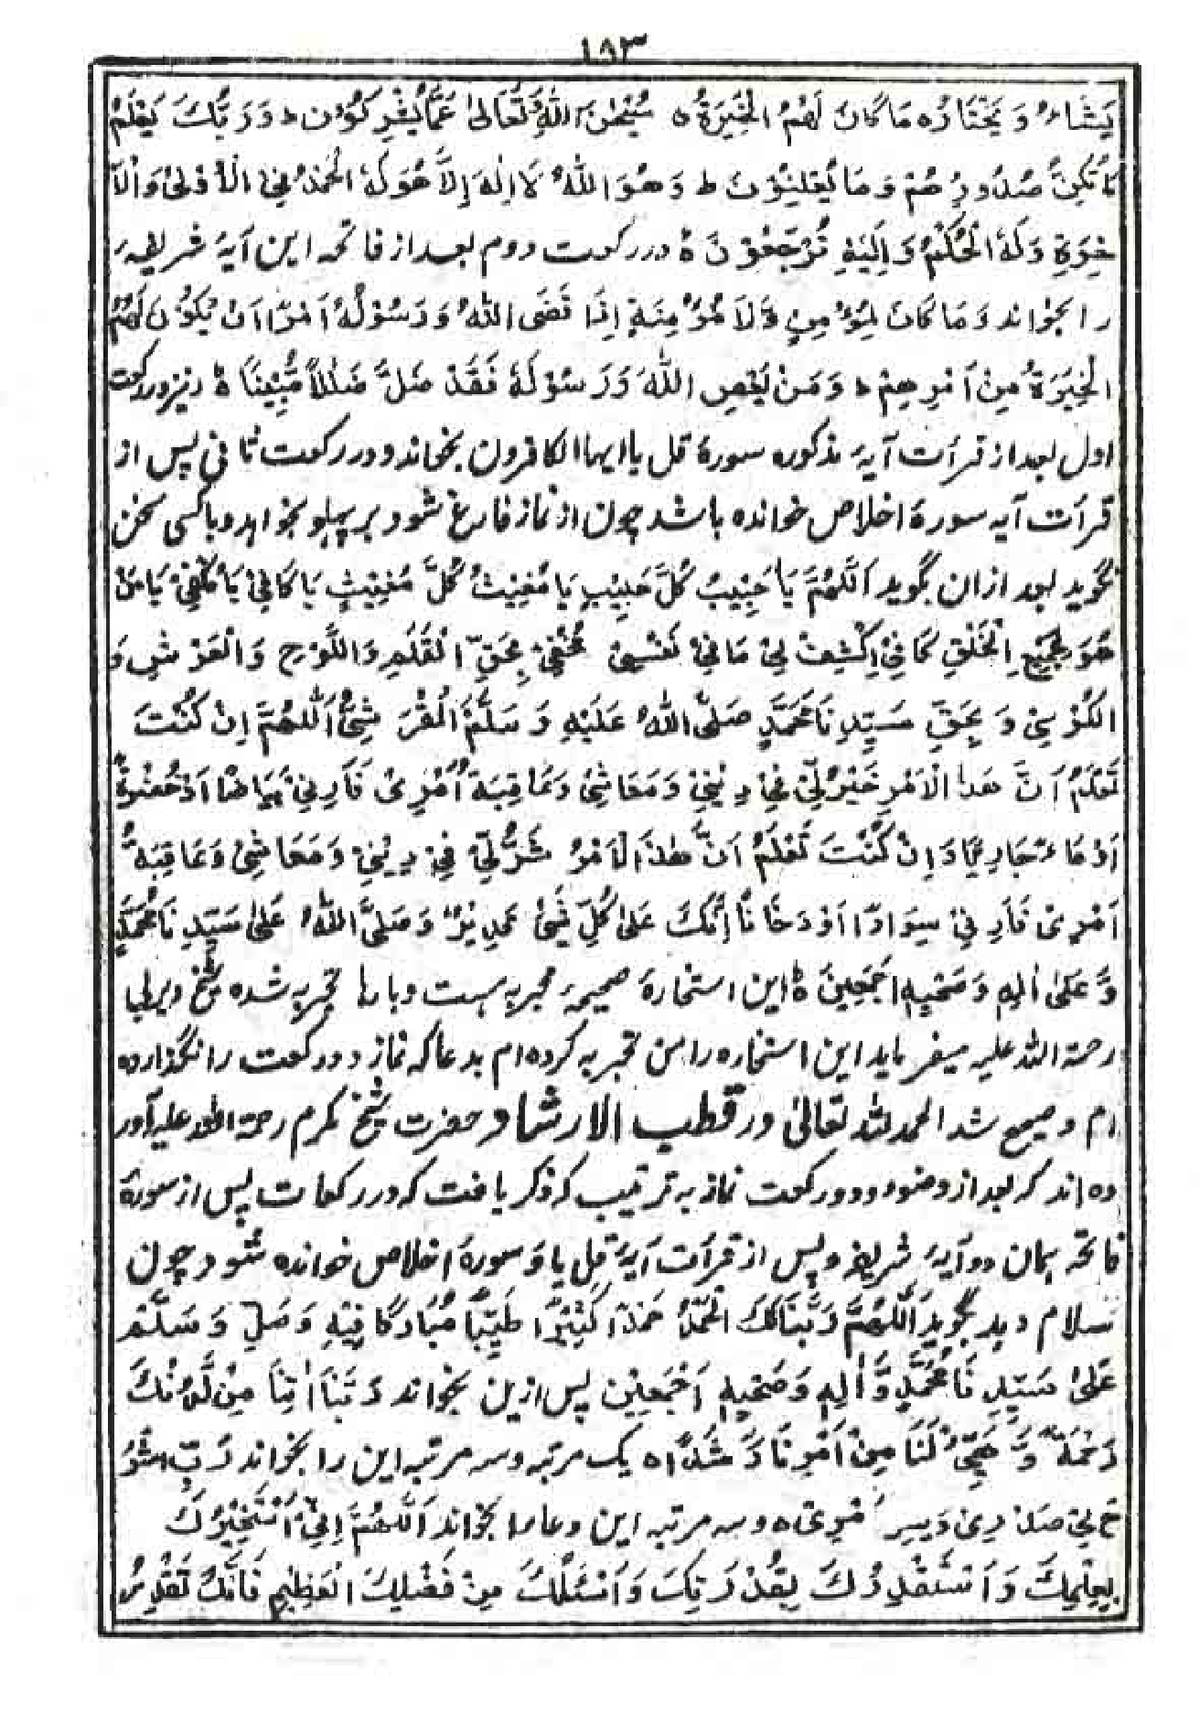 ١٨٣
يَشَاءُ وَ يَخْتَارُه مَا كَانَ لَهُمُ الْخِيَرَةُ ه سُبْحٰنَ اللهِ وَتَعَالٰى عَمَّا يُشْرِكُوْنَ ط وَ رَبُّكَ يَعْلَمُ
مَا تُكِنُّ صُدُورُهُمْ وَ مَا يُعْلِنُوْنَ ط وَ هُوَ اللهُ لَا اِلٰهَ اِلَّا هُوَ لَهُ الْحَمْدُ فِي الْاُوْلٰى وَالْاٰ
خِرَةِ وَ لَهُ الْحُكْمُ وَ اِلَيْهِ تُرْجَعُوْنَ ه در ركعت دوم بعد از فاتحه این آیۀ شریفہ
را بخواند وَ مَا كَانَ لِمُؤْمِنٍ وَّلَا مُؤْمِنَةٍ اِذَا قَضَى اللهُ وَ رَسُوْلُهٗ اَمْرًا اَنْ يَّكُوْنَ لَهُمُ
الْخِيَرَةُ مِنْ اَمْرِهِمْ ط وَ مَنْ يَّعْصِ اللهَ وَ رَسُوْلَهٗ فَقَدْ ضَلَّ ضَلٰلًا مُّبِيْنًا ه نیز در رکعت
اول بعد از قرأت آیہ مذکورہ سورۀ قل یا ایها الکافرون بخواند و در رکعت ثانی پس از
قرأت آیه سورۀ اخلاص خوانده باشد چون از نماز فارغ شود بر پهلو بخوابد و با کسی سخن
نگوید بعد ازان بگوید اَللّٰهُمَّ يَا حَبِيْبَ كُلَّ حَبِيْبٍ يَا مُغِيْثُ كُلَّ مُغِيْثٍ يَا كَافِيْ يَا مُكْفِيْ يَا مَنْ
هُوَ بِجَمِيْعِ الْخَلْقِ كَافِيْ اِكْشِفْ لِيْ مَا فِيْ نَفْسِيْ مَخْفِيْ بِحَقِّ الْقَلَمِ وَاللَّوْحِ وَ الْعَرْشِ وَ
الْكُرْسِيْ وَ بِحَقِّ سَيِّدِنَا مُحَمَّدٍ صَلَّى اللهُ عَلَيْهِ وَ سَلَّمَ الْقُرَشِيُّ اَللّٰهُمَّ اِنْ كُنْتَ
تَعْلَمُ اَنَّ هَذا الْاَمْرِ خَيْرٌ لِّيْ فِيْ دِيْنِيْ وَ مَعَاشِيْ وَ عَاقِبَةُ اَمْرِيْ فَاَرِنِيْ بَيَاضًا اَوْ خُضْرَةً
اَوْ مَاءً جَارِيًا وَ اِنْ كُنْتَ تَعْلَمُ اَنَّ هٰذَ الْاَمْرُ شَرٌّ لِّيْ فِيْ دِيْنِيْ وَ مَعَاشِيْ وَ عَاقِبَةُ
اَمْرِيْ فَاَرِنِيْ سِوَادًا اَوْ دَخَانًا اِنَّكَ عَلٰى كُلِّ شَيْئٍ قَدِيْرٌ وَ صَلَّى اللهُ عَلٰى سَيِّدِنَا مُحَمَّدٍ
وَّ عَلٰى اٰلِهٖ وَ صَحْبِهٖ اَجْمَعِيْنَ ه این استخارۀ صحیحہ مجربہ ہست و بارہا تجربہ شده شیخ دیربی
رحمة الله علیه میفرماید این استخاره را من تجربه کرده ام بدعا که نماز دو رکعت را نگذارده
ام و صحیح شد الحمد لله تعالیٰ در قطب الارشاد حضرت شیخ مکرم رحمة الله علیه آور
ده اند که بعد از وضوء دو رکعت نماز به ترتیب که ذکر یافت که در رکعات پس از سورۀ
فاتحه همان دو آیۀ شریفه و پس از قرأت آیۀ قل یا و سورۀ اخلاص خوانده شود چون
سلام دہد بگوید اَللّٰهُمَّ رَبَّنَا لَكَ الْحَمْدُ حَمْدًا كَثِيْرًا طَيِّبًا مُبَارَكًا فِيْهِ وَ صَلِّ وَ سَلِّمْ
عَلٰى سَيِّدِنَا مُحَمَّدٍ وَّ اٰلِهٖ وَ صَحْبِهٖ اَجْمَعِيْن پس ازین بخواند رَبَّنَا اٰتِنَا مِنْ لَّدُنْكَ
رَحْمَةً وَّ هَيِّئْ لَنَا مِنْ اَمْرِنَا رَشَدًا ه یک مرتبه و سه مرتبه این را بخواند رَبِّ اشْرَ
حْ لِيْ صَدْرِيْ وَ يَسِّرْ اَمْرِيْ ه و سه مرتبه این دعا را بخواند اَللّٰهُمَّ اِنِّيْ اَسْتَخِيْرُكَ
بِعِلْمِكَ وَ اَسْتَقْدِرُكَ بِقُدْرَتِكَ وَ اَسْئَلُكَ مِنْ فَضْلِكَ الْعَظِيْمِ فَاِنَّكَ تَقْدِرُ